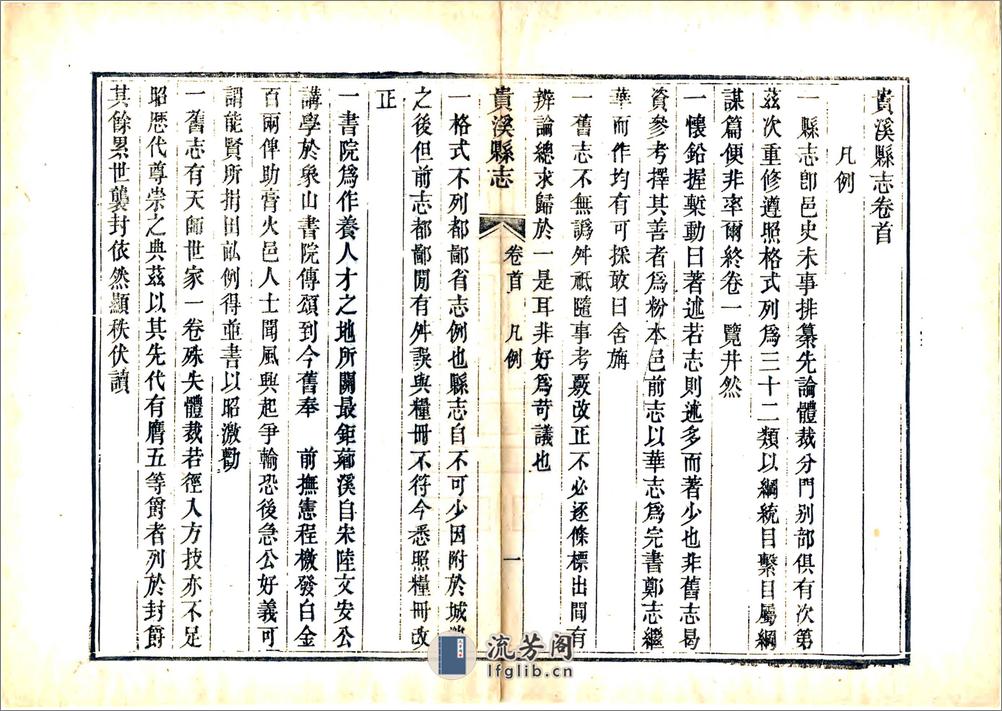 貴溪縣志卷首
凡例
一縣志卽邑史未事排纂先論體裁分門别部俱有次第
茲次重修遵照格式列爲三十二類以綱統目繫目屬綱
謀篇便非率爾終卷一覽井然
一懷鉛握槧動曰著述若志則述多而著少也非舊志曷
資參考擇其善者爲粉本邑前志以華志爲完書鄭志繼
華而作均有可採敢曰舍旃
一舊志不無譌舛祇隨事考覈改正不必逐條標出間有
辨論總求歸於一是耳非好爲苛議也
貴溪縣志
卷首
凡例
一
一格式不列都鄙省志例也縣志自不可少因附於城池
之後但前志都鄙閒有舛誤與糧冊不符今悉照糧冊改
正
一書院爲作養人才之地所關最鉅薌溪自宋陸文安公
講學於象山書院傳頌到今舊奉 前撫憲程檄發白金
百兩俾助膏火邑人士聞風興起爭輸恐後急公好義可
謂能賢所捐田畝例得並書以昭激勸
一舊志有天師世家一卷殊失體裁若徑入方技亦不足
昭歷代尊崇之典茲以其先代有膺五等爵者列於封爵
其餘累世襲封依然顯秩伏讀
流芳阁
lfglib.cn